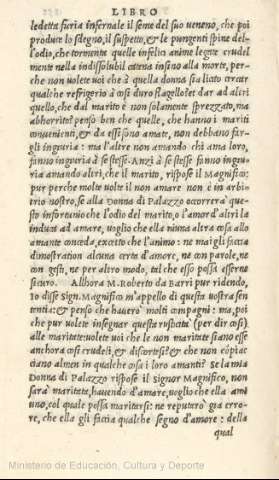 LIBRO
ledetta furia infernale il seme del suo veneno, che poi
produce lo sdegno, il suspetto, & le pungenti spine del-
l'odio, che tormente quelle infelici anime legate crudel
mente nella indissolubil catena insino alla morte, per-
che non uolete uoi che à quella donna sia licito cercar
qualche refrigerio à cosi duro flagello? et dar ad altri
quello, che dal marito è non solamente sprezzato, ma
abhorrito? penso ben che quelle, che hanno i mariti
conuenienti, & da essi sono amate, non debbano far-
gli ingiuria: ma l'altre non amando chi ama loro,
fanno ingiuria à se stesse. Anzi à se stesse fanno ingiu
ria amando altri, che il marito, rispose il Magnifico:
pur perche molte uolte il non amare non è in arbi-
trio nostro, se alla Donna di Palazzo occorrerà que-
sto infortunio che l'odio del marito, o l'amor d'altri la
induca ad amare, uoglio che ella niuna altra cosa allo
amante conceda, eccetto che l'animo: ne mai gli faccia
dimostration alcuna certa d'amore, ne con parole, ne
con gesti, ne per altro modo, tal che esso possa esserne
sicuro. Allhora M. Roberto da Barri pur ridendo,
Io disse Sign. Magnifico m'appello di questa uostra sen
tentia: & penso che hauerò molti compagni: ma, poi
che pur uolete insegnar questa rusticità (per dir cosi)
alle maritate: uolete uoi che le non maritate siano esse
anchora cosi crudeli, & discortesi? & che non còpiac-
ciano almen in qualche cosa i loro amanti? Se la mia
Donna di Palazzo rispose il Signor Magnifico, non
sarà maritata, hauendo d'amare, uoglio che ella ami
uno, col quale possa maritarsi: ne reputerò già erro-
re, che ella gli faccia qualche segno d'amore: della
qual
Ministerio de Educación, Cultura y Deporte